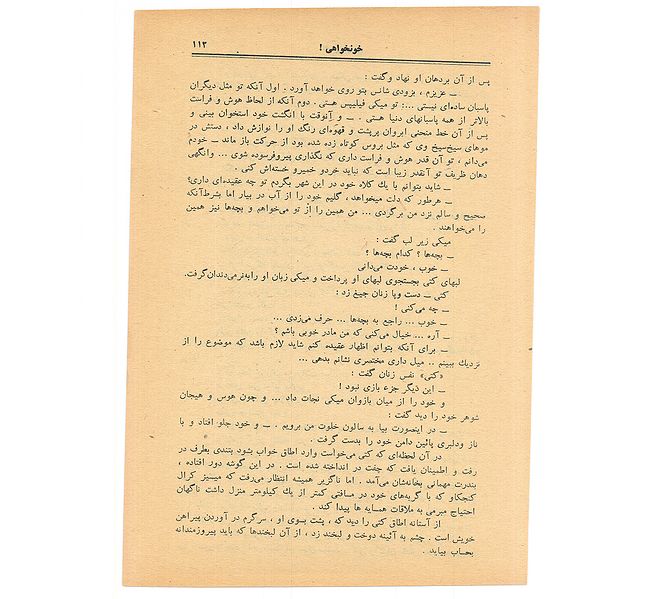 خونخواهی ! ۱۱۳
پس از آن بردهان او نهاد وگفت :
ــ عزیزم ، بزودی شانس بتو روی خواهد آورد . اول آنکه تو مثل دیگران
پاسبان ساده‌ای نیستی ...: تو میکی فیلیپس هستی . دوم آنکه از لحاظ هوش و فراست
بالاتر از همه پاسبانهای دنیا هستی . ــ و آنوقت با انگشت خود استخوان بینی و
پس از آن خط منحنی ابروان پرپشت و قهوه‌ای رنگ او را نوازش داد ، دستش در
موهای سیخ‌سیخ وی که مثل بروس کوتاه زده شده بود از حرکت باز ماند ــ خودم
می‌دانم ، تو آن قدر هوش و فراست داری که نگذاری پیروفرسوده شوی ... وانگهی
دهان ظریف تو آنقدر زیبا است که نباید خردو خمیرو خسته‌اش کنی .
ــ شاید بتوانم با یك کلاه خود در این شهر بگردم تو چه عقیده‌ای داری؟
ــ هرطور که دلت میخواهد ، گلیم خود را از آب در بیار اما بشرط‌آنکه
صحیح و سالم نزد من برگردی ... من همین را از تو می‌خواهم و بچه‌ها نیز همین
را می‌خواهند .
میکی زیر لب گفت :
ــ بچه‌ها ؟ کدام بچه‌ها ؟
ــ خوب ، خودت می‌دانی
لبهای کتی بجستجوی لبهای او پرداخت و میکی زبان او رابه‌نرمی‌دندان‌گرفت.
کتی ــ دست وپا زنان جیغ زد :
ــ چه می‌کنی !
ــ خوب ... راجع به بچه‌ها ... حرف می‌زدی ...
ــ آره ... خیال می‌کنی که من مادر خوبی باشم ؟
ــ برای آنکه بتوانم اظهار عقیده کنم شاید لازم باشد که موضوع را از
نزدیك ببینم .. میل داری مختصری نشانم بدهی ...
«کتی» نفس زنان گفت :
ــ این دیگر جزء بازی نبود !
و خود را از میان بازوان میکی نجات داد ... و چون هوس و هیجان
شوهر خود را دید گفت :
ــ در اینصورت بیا به سالون خلوت من برویم . ــ و خود جلو افتاد و با
ناز ودلبری پائین دامن خود را بدست گرفت .
در آن لحظه‌ای که کتی می‌خواست وارد اطاق خواب بشود بتندی بطرف در
رفت و اطمینان یافت که چفت در انداخته شده است . در این گوشه دور افتاده ،
بندرت مهمانی بخانه‌شان می‌آمد . اما ناگزیر همیشه انتظار می‌رفت که میسیز کرال
کنجکاو که با گربه‌های خود در مسافتی کمتر از یك کیلومتر منزل داشت ناگهان
احتیاج مبرمی به ملاقات همسایه ها پیدا کند .
از آستانه اطاق کتی را دید که ، پشت بسوی او ، سرگرم در آوردن پیراهن
خویش است . چشم به آئینه دوخت و لبخند زد ، از آن لبخندها که باید پیروزمندانه
بحساب بیاید .